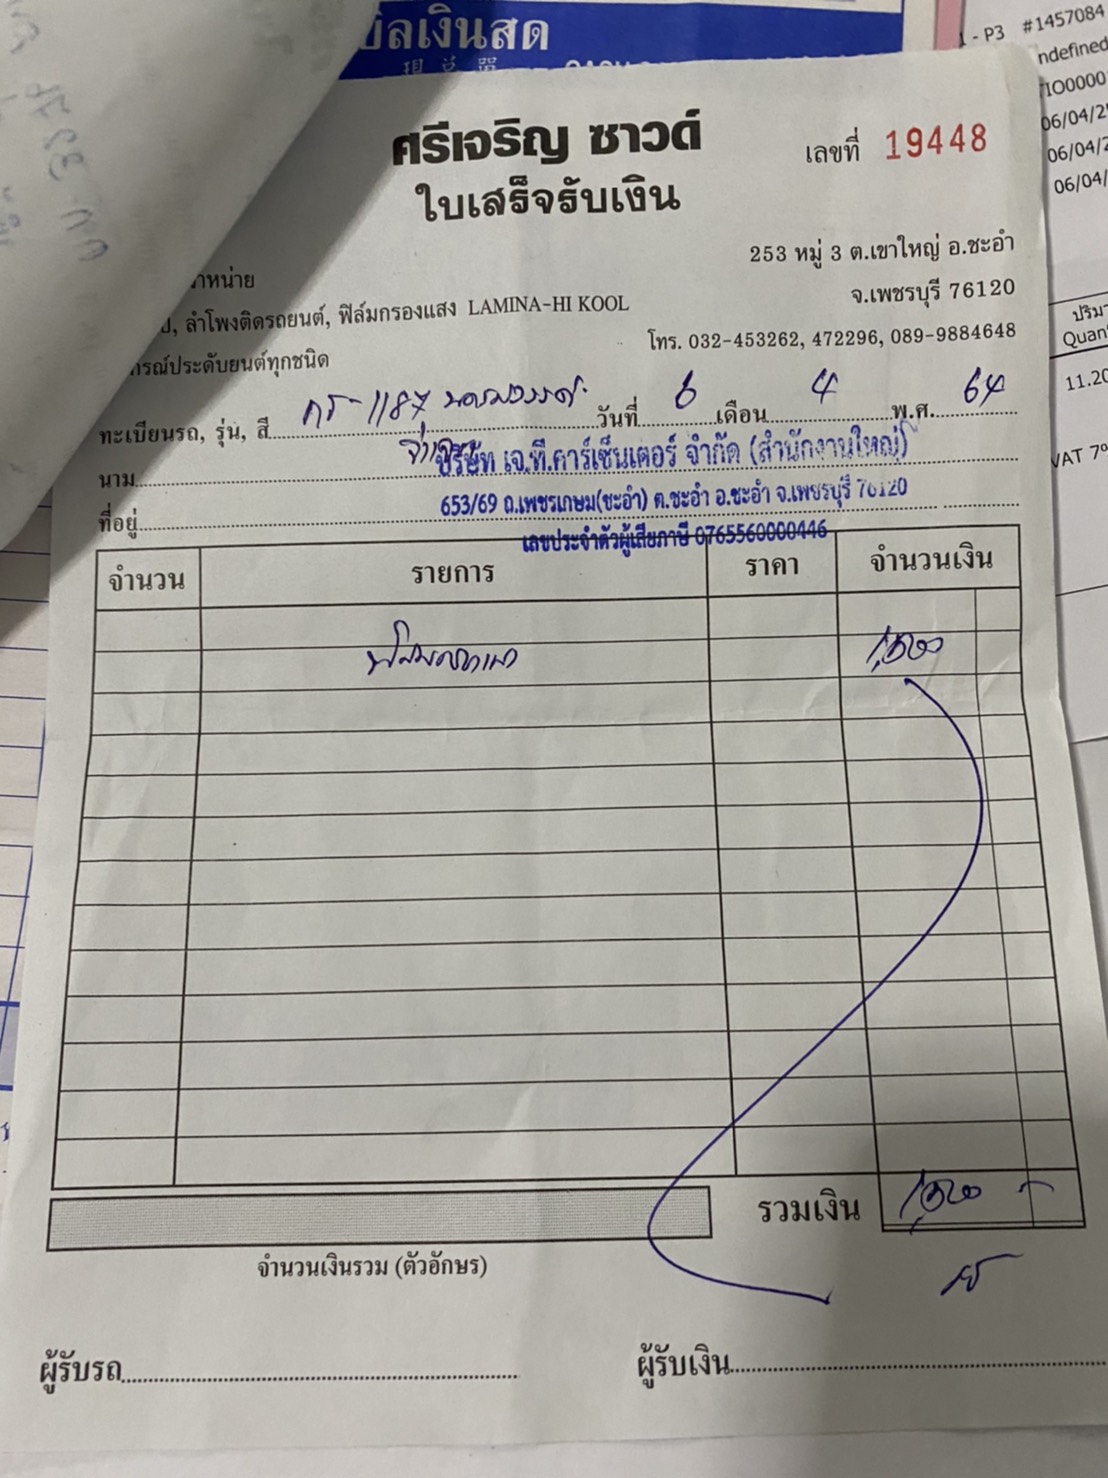 บิลเงินสด
1 - P3 #1457084
ndefined
06/04/2
06/04/2
06/04/
ปริม
Quan
11.20
VAT 7%
ศรีเจริญ ซาวด์
เลขที่ 19448
ใบเสร็จรับเงิน
253 หมู่ 3 ต.เขาใหญ่ อ.ชะอำ
จ.เพชรบุรี 76120
โทร. 032-453262, 472296, 089-9884648
าหน่าย
ป, ลำโพงติดรถยนต์, ฟิล์มกรองแสง LAMINA-HI KOOL
กรณ์ประดับยนต์ทุกชนิด
ทะเบียนรถ, รุ่น, สี กร-1187 วันที่ 6 เดือน 4 พ.ศ. 64
นาม บริษัท เจ.ที.คาร์เซ็นเตอร์ จำกัด (สำนักงานใหญ่)
ที่อยู่ 653/69 ถ.เพชรเกษม(ชะอำ) ต.ชะอำ อ.ชะอำ จ.เพชรบุรี 76120
เลขประจำตัวผู้เสียภาษี 0765560000446
จำนวน รายการ ราคา จำนวนเงิน
รวมเงิน
จำนวนเงินรวม (ตัวอักษร)
ผู้รับรถ ผู้รับเงิน